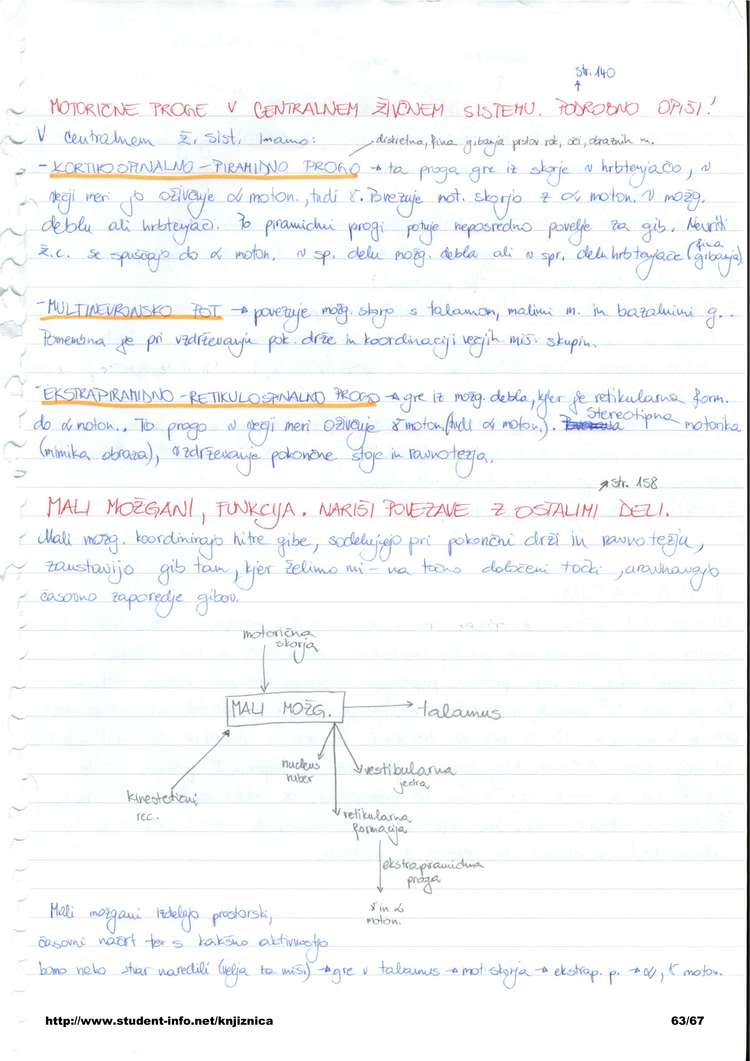 str. 140
MOTORIČNE PROGE V CENTRALNEM ŽIVČNEM SISTEMU. PODROBNO OPIŠI!
V centralnem ž. sist. imamo:
diskretna, fina gibanja prstov rok, oči, obraznih m.
- KORTIKOSPINALNO-PIRAMIDNO PROGO → ta proga gre iz skorje v hrbtenjačo, v
večji meri jo oživčuje α moton., tudi γ. Povezuje mot. skorjo z α moton. v možg.
deblu ali hrbtenjači. Po piramidni progi potuje neposredno povelje za gib. Nevriti
ž.c. se spuščajo do α moton. v sp. delu možg. debla ali v spr. delu hrbtenjače (fina gibanja)
- MULTINEVRONSKO POT → povezuje možg. skorjo s talamom, malimi m. in bazalnimi g..
Pomembna je pri vzdrževanju pok. drže in koordinaciji večjih miš. skupin.
- EKSTRAPIRAMIDNO-RETIKULOSPINALNO PROGO → gre iz možg. debla, kjer je retikularna form.
do α moton.. To progo v večji meri oživčuje γ moton. (tudi α moton.). Stereotipna motorika
(mimika obraza), vzdrževanje pokončne stoje in ravnotežja.
str. 158
MALI MOŽGANI, FUNKCIJA. NARIŠI POVEZAVE Z OSTALIMI DELI.
Mali možg. koordinirajo hitre gibe, sodelujejo pri pokončni drži in ravnotežju,
zaustavijo gib tam, kjer želimo mi - na točno določeni točki, uravnavajo
časovno zaporedje gibov.
motorična
skorja
MALI MOŽG.
talamus
nucleus
ruber
vestibularna
jedra
kinestetični
rec.
retikularna
formacija
ekstrapiramidna
proga
γ in α
moton.
Mali možgani izdelajo prostorski,
časovni načrt ter s kakšno aktivnostjo
bomo neko stvar naredili (velja za miši) → gre v talamus → mot. skorja → ekstrap. p. → α, γ moton.
http://www.student-info.net/knjiznica
63/67